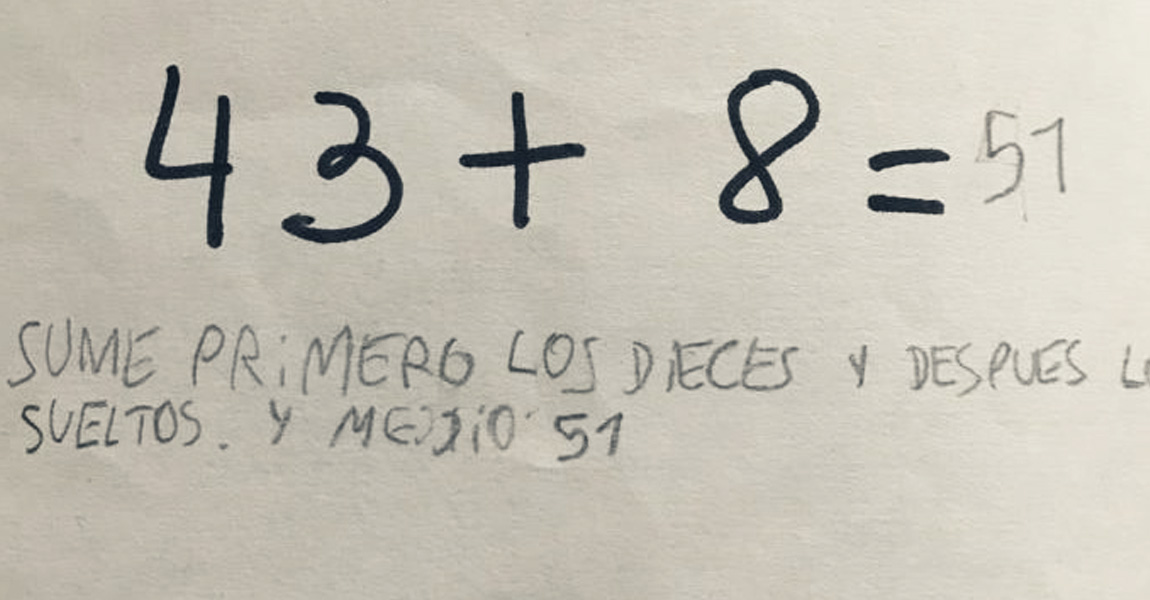 43 + 8 = 51
SUME PRiMERO LOS DiECES Y DESPUES LO
SUELTOS. Y ME DiO 51